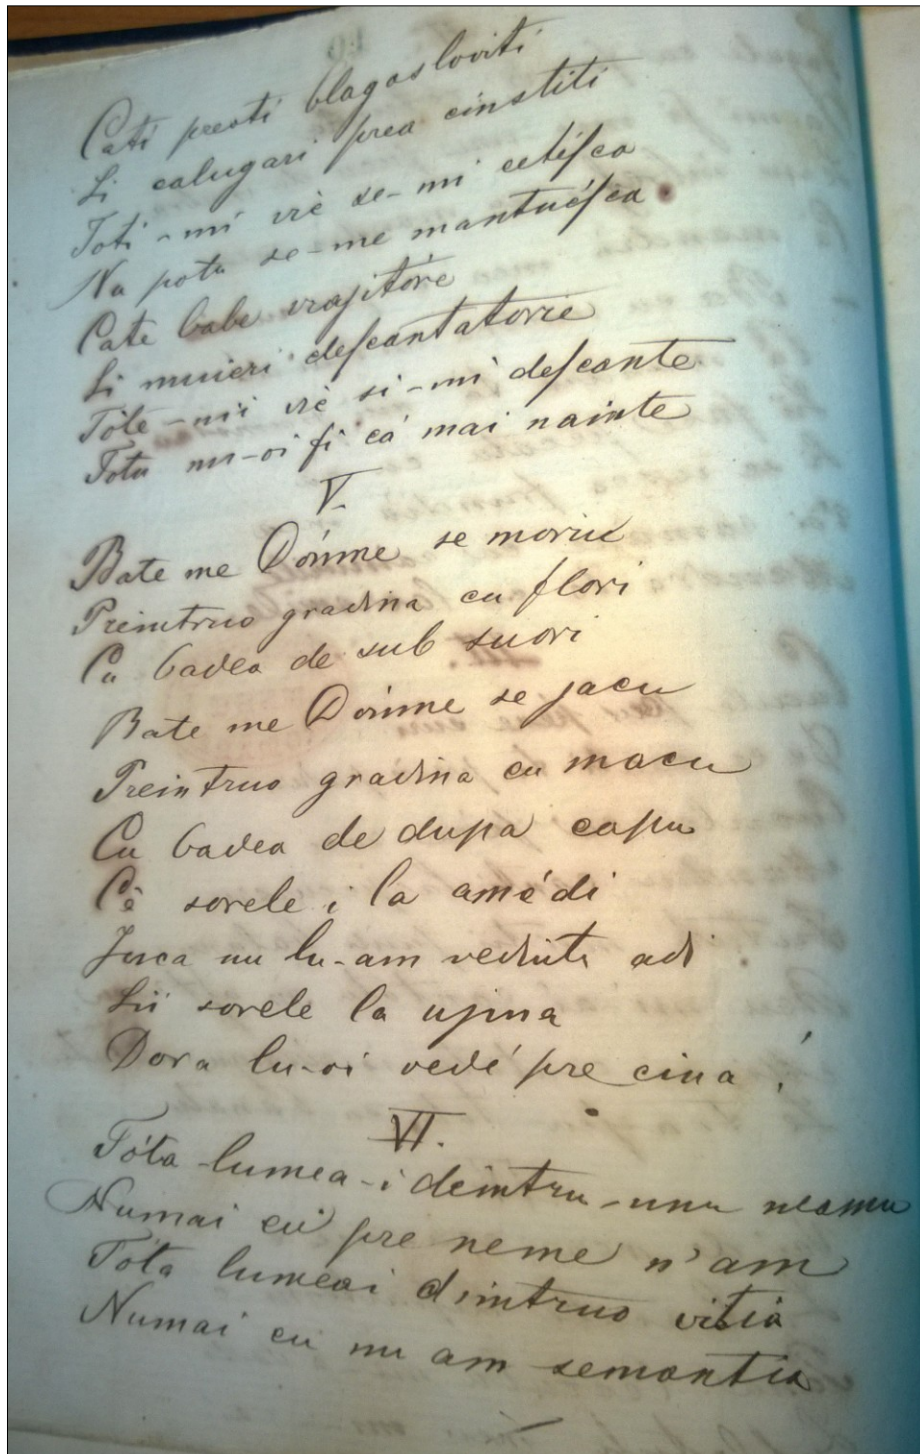 Cati preoti blagosloviti
Si calugari prea cinstiti
Toti-mi vrè se-mi cetésca
Nu potu se-me mantuésca
Cate babe vrajitóre
Si muieri descantatorie
Tóte-mi vrè si-mi descante
Totu nu-oi fi cá mai nainte
V.
Bate me Dómne se moriu
Preintruo gradina cu flori
Cu badea de sub suori
Bate me Dómne se jacu
Preintruo gradina cu macu
Cu badea de dupa capu
Cê sorele i la amédi
Inca nu lu-am vediutu adi
Sii sorele la ujina
Dora lu-oi vedé pre cina!
VI.
Tóta lumea-i deintru-unu neamu
Numai eu pre neme n'am
Tóta lumeai dintruo vitia
Numai eu nu am semantia